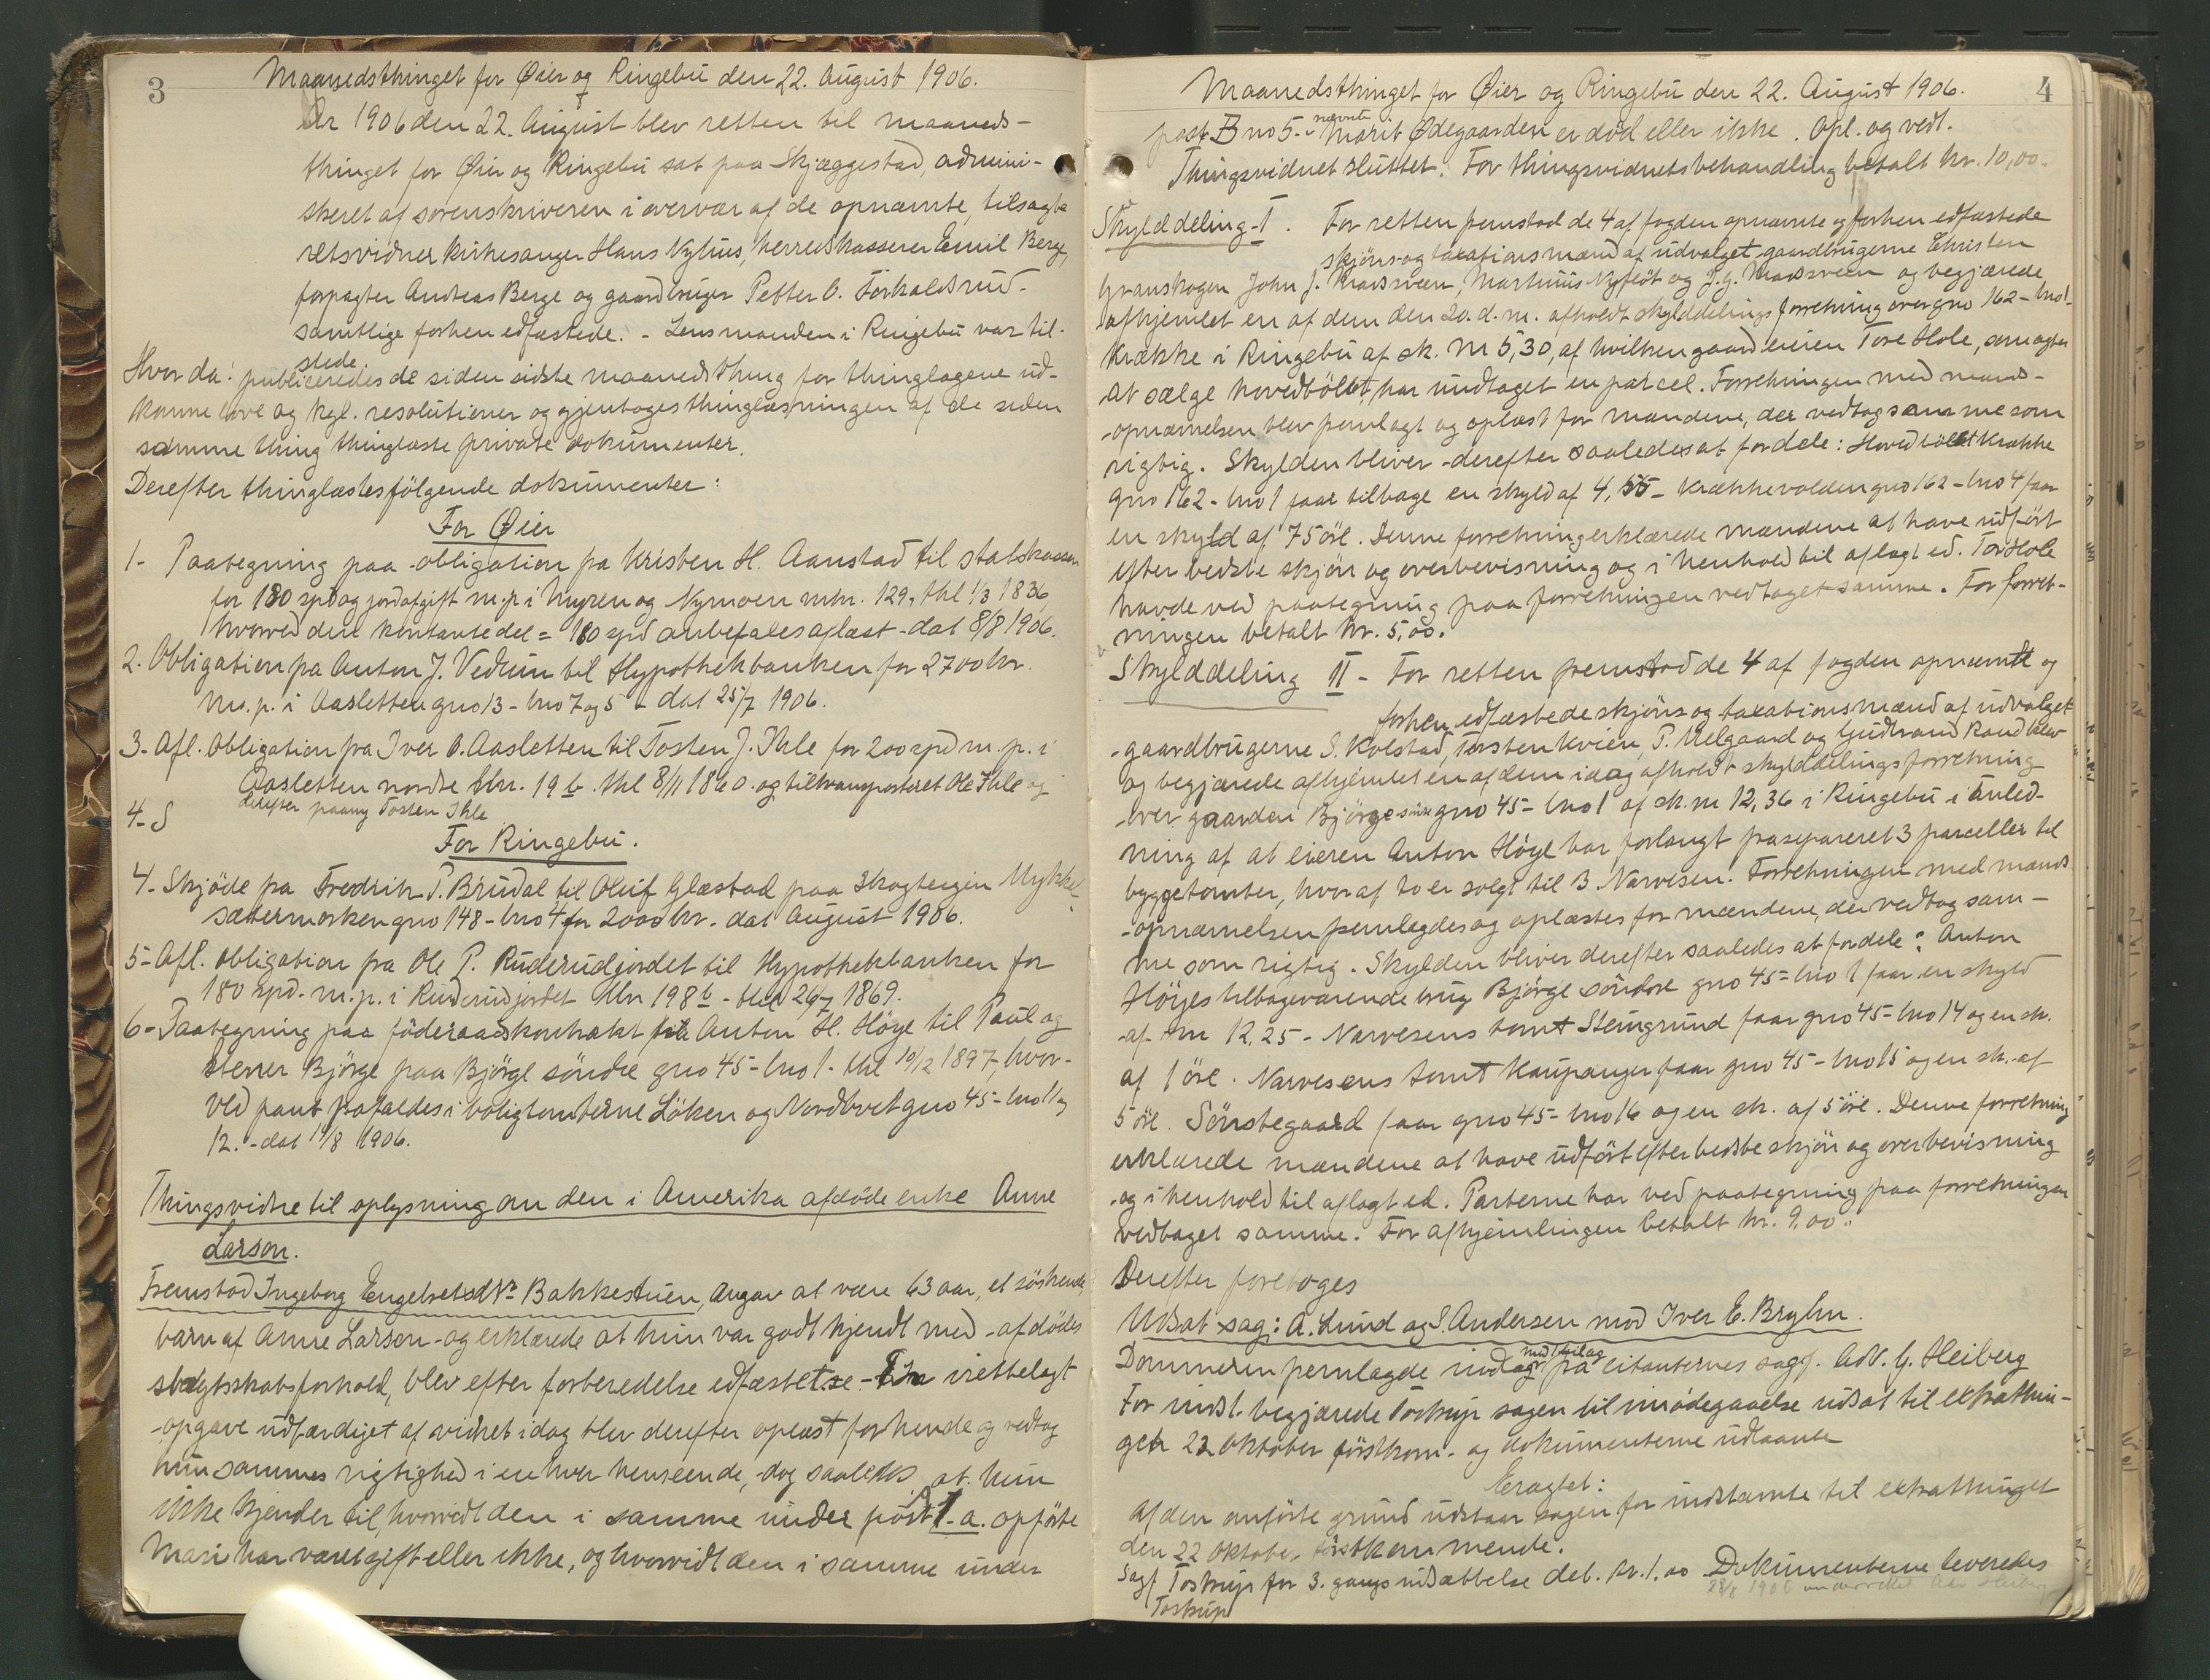 3
Maanedsthinget for Øier og Ringebu den 22. August 1906.
Aar 1906 den 22. August blev retten til maaneds-
thinget for Øier og Ringebu sat paa Skjæggestad, admini-
streret af sorenskriveren i overvær af de opnævnte, tilsagte
retsvidner kirkesanger Hans Nyhus, herredskasserer Emil Berge,
forpagter Andreas Berge og gaardbruger Petter O.
samtlige forhen edfæstede. - Lensmanden i Ringebu var til-
stede
Hvor da: publiceredes de siden sidste maanedsthing for thinglagene ud-
komne love og kgl. resolutioner og gjentoges thinglæsningen af de siden
samme thing thinglæste private dokumenter.
Derefter thinglæstes følgende dokumenter:
For Øier
1- Paategning paa obligation fra Kristen H. Aanstad til statskassen
for 180 spd og jordafgift m.p. i Myren og Nymoen mtr. 129, thl 1/3 1836,
hvorved den kontante del = 180 spd anbefales aflæst - dat 8/8 1906.
2. Obligation fra Anton J. Vedum til Hypothekbanken for 2700 kr.
m.p. i Aasletten gno 13 - bno 7 og 5 - dat 25/7 1906.
3- Afl. Obligation fra Iver O. Aasletten til Tosten J. Ihle for 200 spd m.p. i
Aasletten nordre Mn. 19 b. thl 8/11 1860. og tiltransporteret Ole Ihle og
derefter paany Tosten Ihle
4- S
For Ringebu.
4- Skjøde fra Fredrik P. Brudal til Oluf Glæstad paa Skogteigen Mykkel-
sætermorken gno 148 - bno 4 for 2000 kr. dat August 1906.
5- Afl. obligation fra Ole P. Ruderudjordet til Hypothekbanken for
180 spd. m.p. i Ruderudjordet Mn 198 b - thl 26/7 1869.
6- Paategning paa föderaadskontrakt fra Anton H. Höye til Paul og
Björge paa Björge söndre gno 45 - bno 1. thl 10/12 1897, hvor-
ved pant frafaldes i boligtomterne Löken og Nordbvet gno 45 - bno 11 og
12. - dat 14/8 1906.
Thingsvidne til oplysning om den i Amerika afdöde enke Anne
Larson.
Fremstod Ingeborg Engebretsdtr Bakkestuen, angav at være 63 aar, et söskende-
barn af Anne Larson - og erklærede at hun var godt kjendt med afdödes
slægtskabsforhold, blev efter forberedelse edfæstet. - En irettelagt
opgave udfærdiget af vidnet idag blev derefter oplæst for hende og vedtog
hun sammes rigtighed i enhver henseende, dog saaledes, at hun
ikke kjender til, hvorvidt den i samme under post A 1. a. opförte
Mari har været gift eller ikke, og hvorvidt den i samme under
Maanedsthinget for Øier og Ringebu den 22. August 1906.
4
post B no 5. nævnte Marit Ødegaarden er död eller ikke. Opl. og vedt.
Thingsvidnet sluttet. For thingsvidnets behandling betalt kr. 10,00.
Skylddeling I. For retten fremstod de 4 af fogden opnævnte og forhen edfæstede
skjöns og taxationsmænd af udvalget gaardbrugerne Christen
Granskogen John J. Kradsveen, Martinus Nyflöt og J. G. Moosveen og begjærede
afhjemlet en af dem den 20. d. m. afholdt skylddelingsforretning over gno 162 - bno 1
Krække i Ringebu af sk. M 5,30, af hvilken gaard eieren Tore Hole, som agter
at sælge hovedbölet, har undtaget en parcel. Forretningen med mands-
opnævnelsen blev fremlagt og oplæst for mændene, der vedtog samme som
rigtig. Skylden bliver derefter saaledes at fordele: Hovedbölet Krække
gno 162 - bno 1 faar tilbage en skyld af 4,55 - Krækkevolden gno 162 - bno 4 faar
en skyld af 75 öre. Denne forretning erklærede mændene at have udfört
efter bedste skjön og overbevisning og i henhold til aflagt ed. Tor Hole
havde ved paategning paa forretningen vedtaget samme. For forret-
ningen betalt kr. 5,00.
Skylddeling II - For retten fremstod de 4 af fogden opnævnte og
forhen edfæstede skjöns og taxationsmænd af udvalget
gaardbrugerne S. Kolstad, Torsten Kvien, P. Melgaard og Gudbrand Randklev
og begjærede afhjemlet en af dem idag afholdt skylddelingsforretning
over gaarden Björge söndre gno 45 - bno 1 af sk. m 12,36 i Ringebu i anled-
ning af at eieren Anton Höye har forlangt frasepareret 3 parceller til
byggetomter, hvoraf to er solgt til B. Narvesen. Forretningen med mands
opnævnelsen fremlagdes og oplæstes for mændene, der vedtog sam-
me som rigtig. Skylden bliver derefter saaledes at fordele: Anton
Höyes tilbageværende brug Björge söndre gno 45 - bno 1 faar en skyld
af m 12,25 - Narvesens tomt Steingrund faar gno 45 - bno 14 og en sk.
af 1 öre. Narvesens tomt Kaupanger faar gno 45 - bno 15 og en sk. af
5 öre. Sönstegaard faar gno 45 - bno 16 og en sk. af 5 öre. Denne forretning
erklærede mændene at have udfört efter bedste skjön og overbevisning
og i henhold til aflagt ed. Parterne har ved paategning paa forretningen
vedtaget samme. For afhjemlingen betalt kr. 9,00.
Derefter foretoges
Udsat sag: A. Lund og S. Andersen mod Iver E. Bryhn.
Dommeren fremlagde indlæg med bilag fra citanternes sagf. adv. G. Heiberg
For indst. begjærede Tostrup sagen til imödegaaelse udsat til extrathin-
get 22 oktober förstkom. og dokumenterne udlaante
Eragtet:
Af den anförte grund udstaar sagen for indstævnte til extrathinget
den 22 oktober förstkommende.
Sagf Tostrup for 3. gangs udsættelse deb. kr. 1.00 Dokumenterne leveredes
Tostrup
28/8 1906 underrettet Adv Heiberg